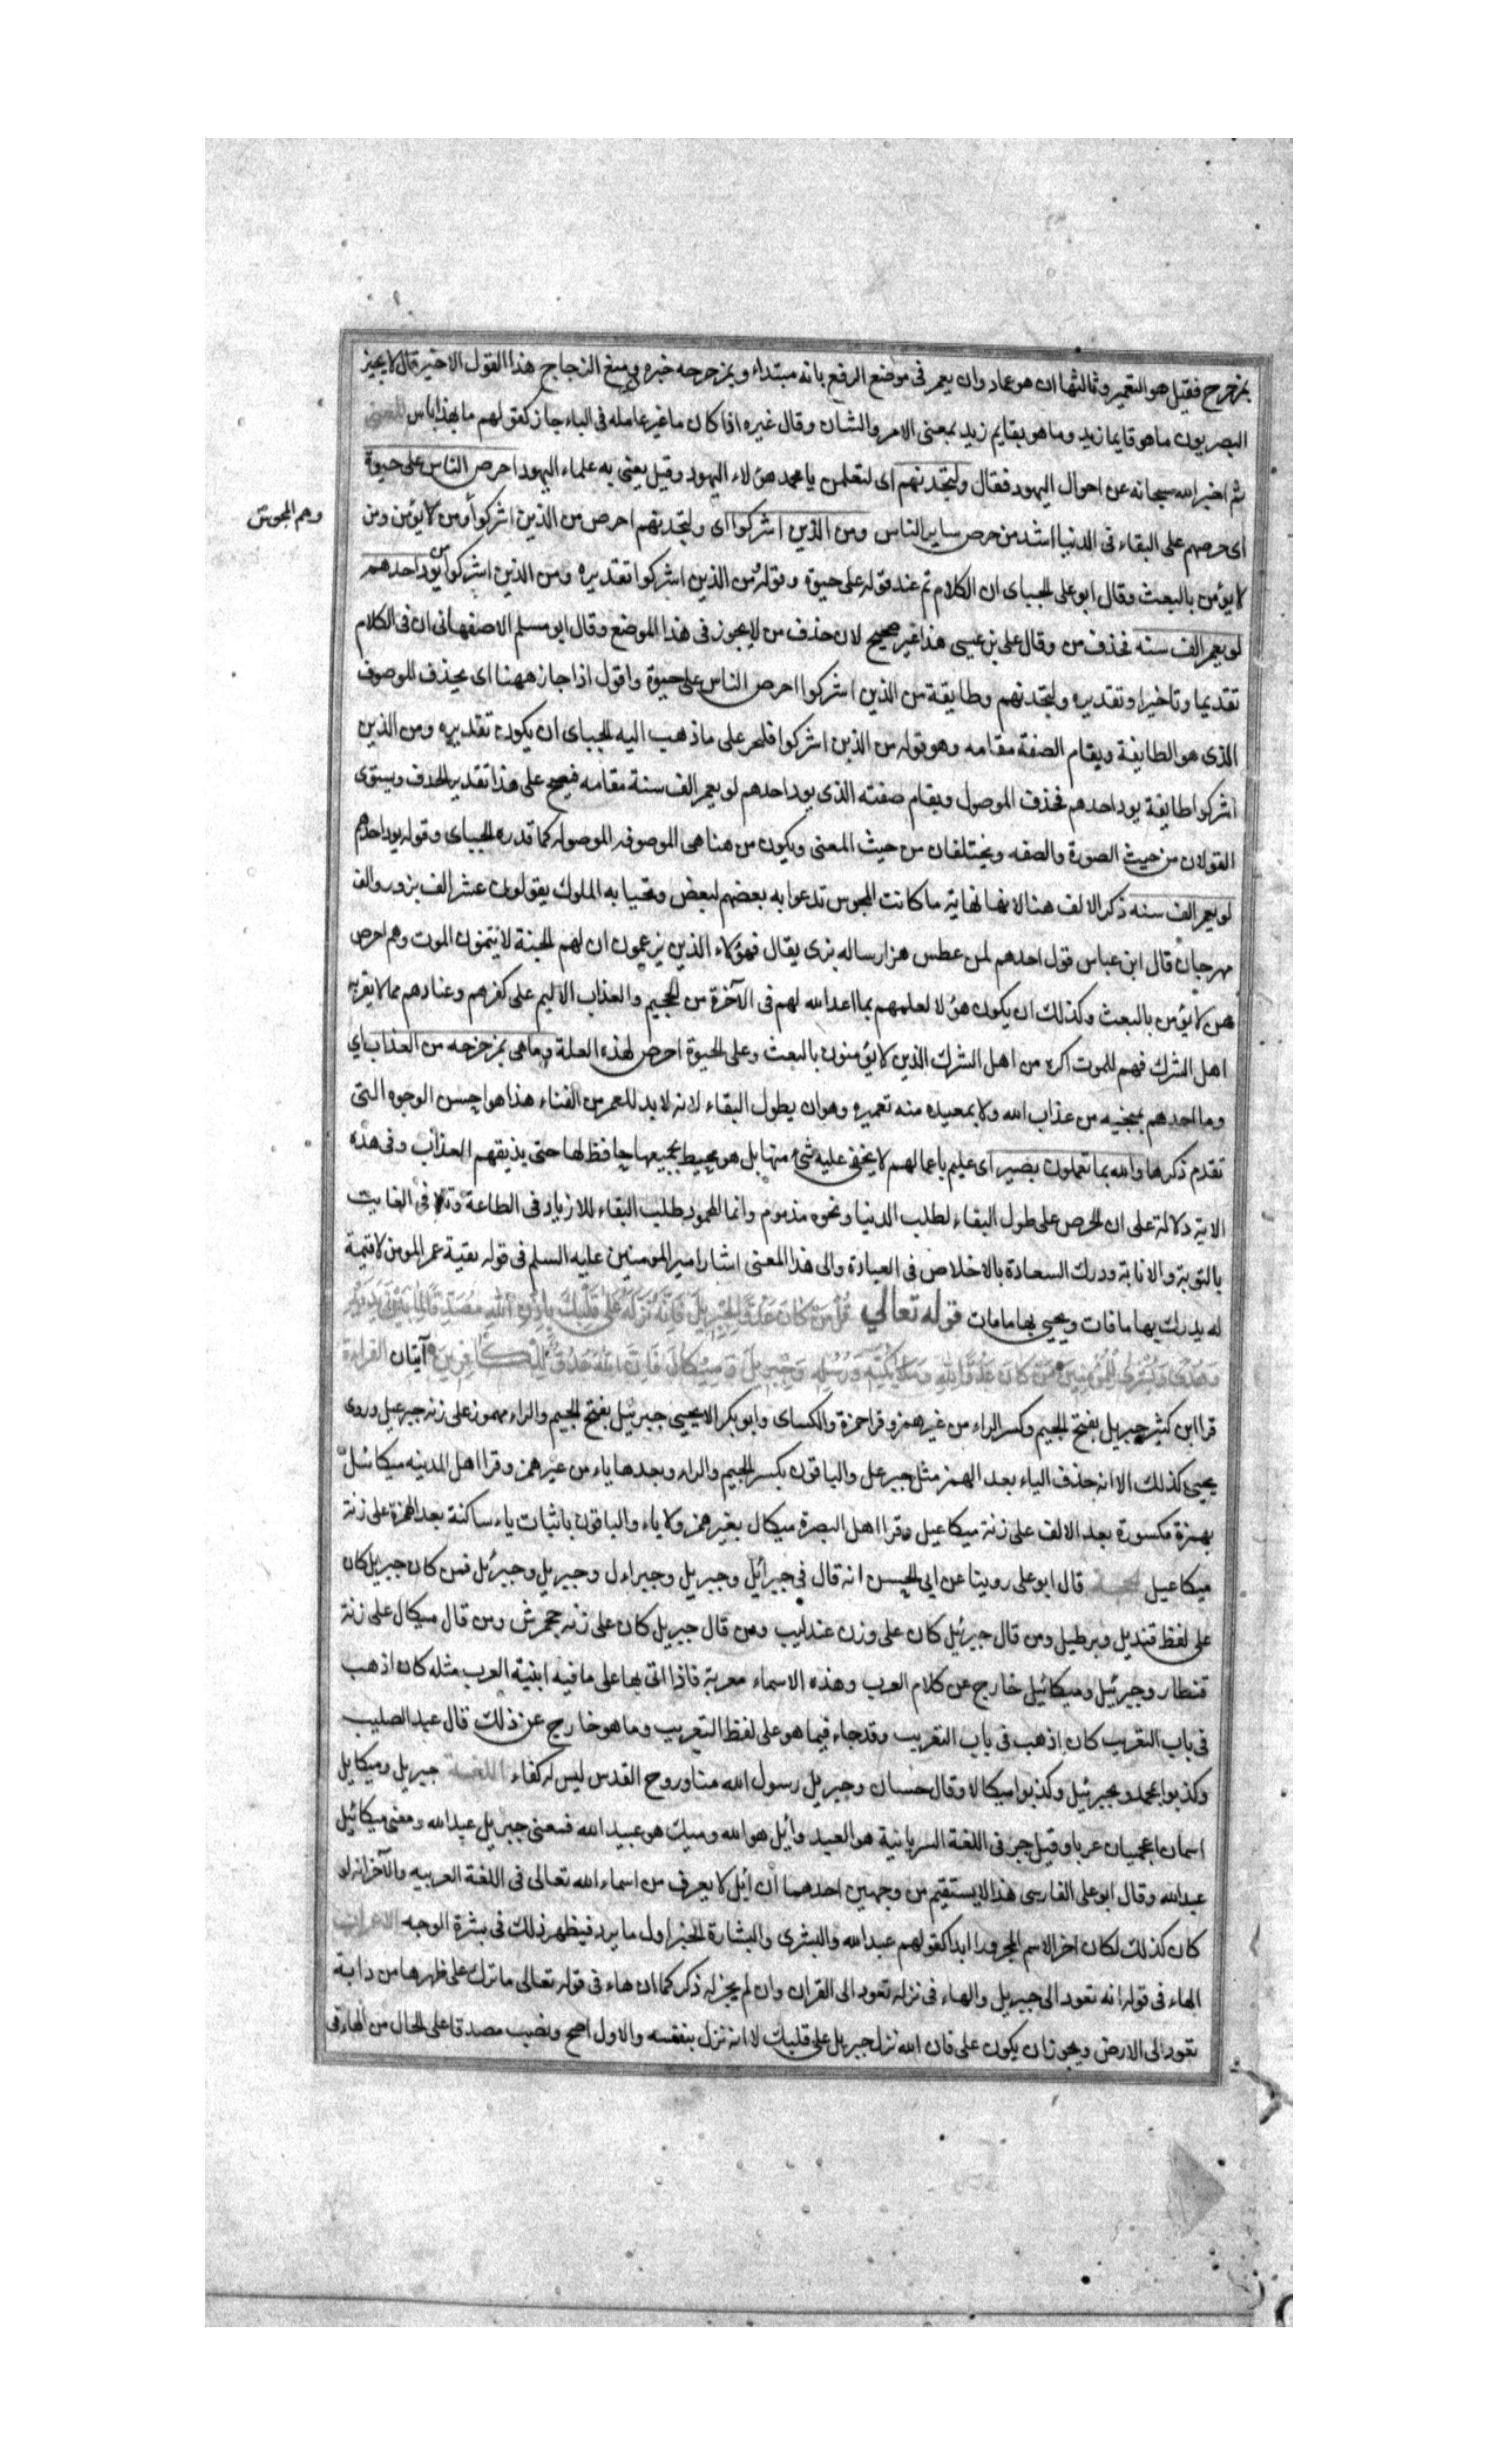 بمزحزح فقيل هو التعمير وثالثها ان هو عماد وان يعمر فى موضع الرفع بانه مبتداء وبمزحزحه خبره ومنع الزجاج هذا القول الاخير قال لا يجيز
البصريون ما هو قايما زيد وما هو بقايم زيد بمعنى الامر والشان وقال غيره اذا كان ما غير عامله فى الباء جاز كقولهم ما بهذا باس المعنى
ثم اخبر الله سبحانه عن احوال اليهود فقال ولتجدنهم اى لتعلمن يا محمد هؤلاء اليهود وقيل يعنى به علماء اليهود احرص الناس على حيوة
اى حرصهم على البقاء فى الدنيا اشد من حرص ساير الناس ومن الذين اشركوا اى ولتجدنهم احرص من الذين اشركوا ومن لا يؤمن ومن
وهم المجوس
لا يؤمن بالبعث وقال ابو على الجبياى ان الكلام تم عند قوله على حيوة وقوله ومن الذين اشركوا تقديره ومن الذين اشركوا من يود احدهم
لو يعمر الف سنه فحذف من وقال على بن عيسى هذا غير صحيح لان حذف من لا يجوز فى هذا الموضع وقال ابو مسلم الاصفهانى ان فى الكلام
تقديما وتاخيرا وتقديره ولتجدنهم وطايفة من الذين اشركوا احرص الناس على حيوة واقول اذا جاز ههنا اى يحذف الموصوف
الذى هو الطايفة ويقام الصفة مقامه وهو قوله من الذين اشركوا فلم على ما ذهب اليه الجبياى ان يكون تقديره ومن الذين
اشركوا طايفة يود احدهم فحذف الموصول ويقام صفته الذى يود احدهم لو يعمر الف سنة مقامه فيصح على هذا تقدير الحذف ويستوى
القولان من حيث الصورة والصفه ويختلفان من حيث المعنى ويكون من هنا هى الموصوفه الموصوله كما قدره الجبياى وقوله يود احدهم
لو يعمر الف سنه ذكر الالف هنا لانها نهاية ما كانت المجوس تدعوا به بعضهم لبعض وتحيا به الملوك يقولون عشر الف نيروز والف
مهرجان قال ابن عباس قول احدهم لمن عطس هزار ساله بزى يقال فهؤلاء الذين يزعمون ان لهم الجنة لا يتمنون الموت وهم احرص
ممن لا يؤمن بالبعث وكذلك ان يكون هؤلا لعلمهم بما اعد الله لهم فى الآخرة من الجحيم والعذاب الاليم على كفرهم وعنادهم مما لا يقربه
اهل الشرك فهم للموت اكره من اهل الشرك الذين لا يؤمنون بالبعث وعلى الحيوة احرص لهذه العلة وما هى بمزحزحه من العذاب اي
وما احدهم بمنجيه من عذاب الله ولا بمبعيده منه تعميره وهو ان يطول البقاء لانه لا بد للعمر من الفناء هذا هو احسن الوجوه التى
تقدم ذكرها والله بما تعملون بصير اى عليم باعمالهم لا يخفى عليه شئ منها بل هو محيط بجميعها حافظ لها حتى يذيقهم العذاب وفى هذه
الاية دلالة على ان الحرص على طول البقاء لطلب الدنيا ونحوه مذموم وانما المحمود طلب البقاء للازياد فى الطاعة وتلافى الفايت
بالتوبة والانابة ودرك السعادة بالاخلاص فى العبادة والى هذا المعنى اشار امير المومنين عليه السلم فى قوله بقية عمر المومن لا قيمة
له يدرك بها ما فات ويحيى بها مامات قوله تعالى قُلْ مَنْ كَانَ عَدُوًّا لِجِبْرِيلَ فَإِنَّهُ نَزَّلَهُ عَلَى قَلْبِكَ بِإِذْنِ اللهِ مُصَدِّقًا لِمَا بَيْنَ يَدَيْهِ
وَهُدًى وَبُشْرَى لِلْمُؤْمِنِينَ مَنْ كَانَ عَدُوًّا لِلهِ وَمَلَائِكَتِهِ وَرُسُلِهِ وَجِبْرِيلَ وَمِيكَالَ فَإِنَّ اللهَ عَدُوٌّ لِلْكَافِرِينَ آيتان القراءة
قرا ابن كثير جبريل بفتح الجيم وكسر الراء من غير همز وقرا حمزة والكساى وابو بكر الا يحيى جبرئيل بفتح الجيم والراء مهموز على زنه جبرعيل وروى
يحيى كذلك الا انه حذف الياء بعد الهمز مثل جبرعل والباقون بكسر الجيم والراء وبعدها ياء من غير همز وقرا اهل المدينه ميكائل
بهمزة مكسورة بعد الالف على زنة ميكاعيل وقرا اهل البصرة ميكال بغير همز ولا ياء والباقون باثبات ياء ساكنة بعد الهمزة على زنة
ميكاعيل الحجة قال ابو على روينا عن ابي الحسن انه قال فى جبرائيل وجبريل وجبراءل وجبريل وجبرئيل فمن كان جبريل كان
على لفظ قنديل وبرطيل ومن قال جبرئيل كان على وزن عندليب ومن قال جبريل كان على زنه جحمرش ومن قال ميكال على زنة
قنطار وجبرئيل وميكائيل خارج عن كلام العرب وهذه الاسماء معربة فاذا اتى بها على ما فيه ابنية العرب مثله كان اذهب
فى باب التعريب كان اذهب فى باب التعريب وقد جاء فيما هو على لفظ التعريب وما هو خارج عن ذلك قال عبد الصليب
وكذبوا بمحمد وبجبرئيل وكذبوا ميكالا وقال حسان وجبريل رسول الله منا وروح القدس ليس له كفاء اللغة جبريل وميكايل
اسمان اعجميان عربا وقيل جبر فى اللغة السريانية هو العبد وائيل هو الله وميك هو عبيد الله فمعنى جبريل عبد الله ومعنى ميكائيل
عبد الله وقال ابو على الفارسى هذا لا يستقيم من وجهين احدهما ان ائيل لا يعرف من اسماء الله تعالى فى اللغة العربيه والآخر انه لو
كان كذلك لكان اخر الاسم المجرورا ابدا كقولهم عبد الله والبشرى والبشارة الخبر اول ما يرد فيظهر ذلك فى بشرة الوجه الاعراب
الهاء فى قوله انه تعود الى جبريل والهاء فى نزله تعود الى القران وان لم يجز له ذكر كما ان هاء فى قوله تعالى ما ترك على ظهرها من دابة
تعود الى الارض ويجوز ان يكون على فان الله نزل جبريل على قلبك لا انه نزل بنفسه والاول اصح ونصب مصدقا على الحال من الهاء فى